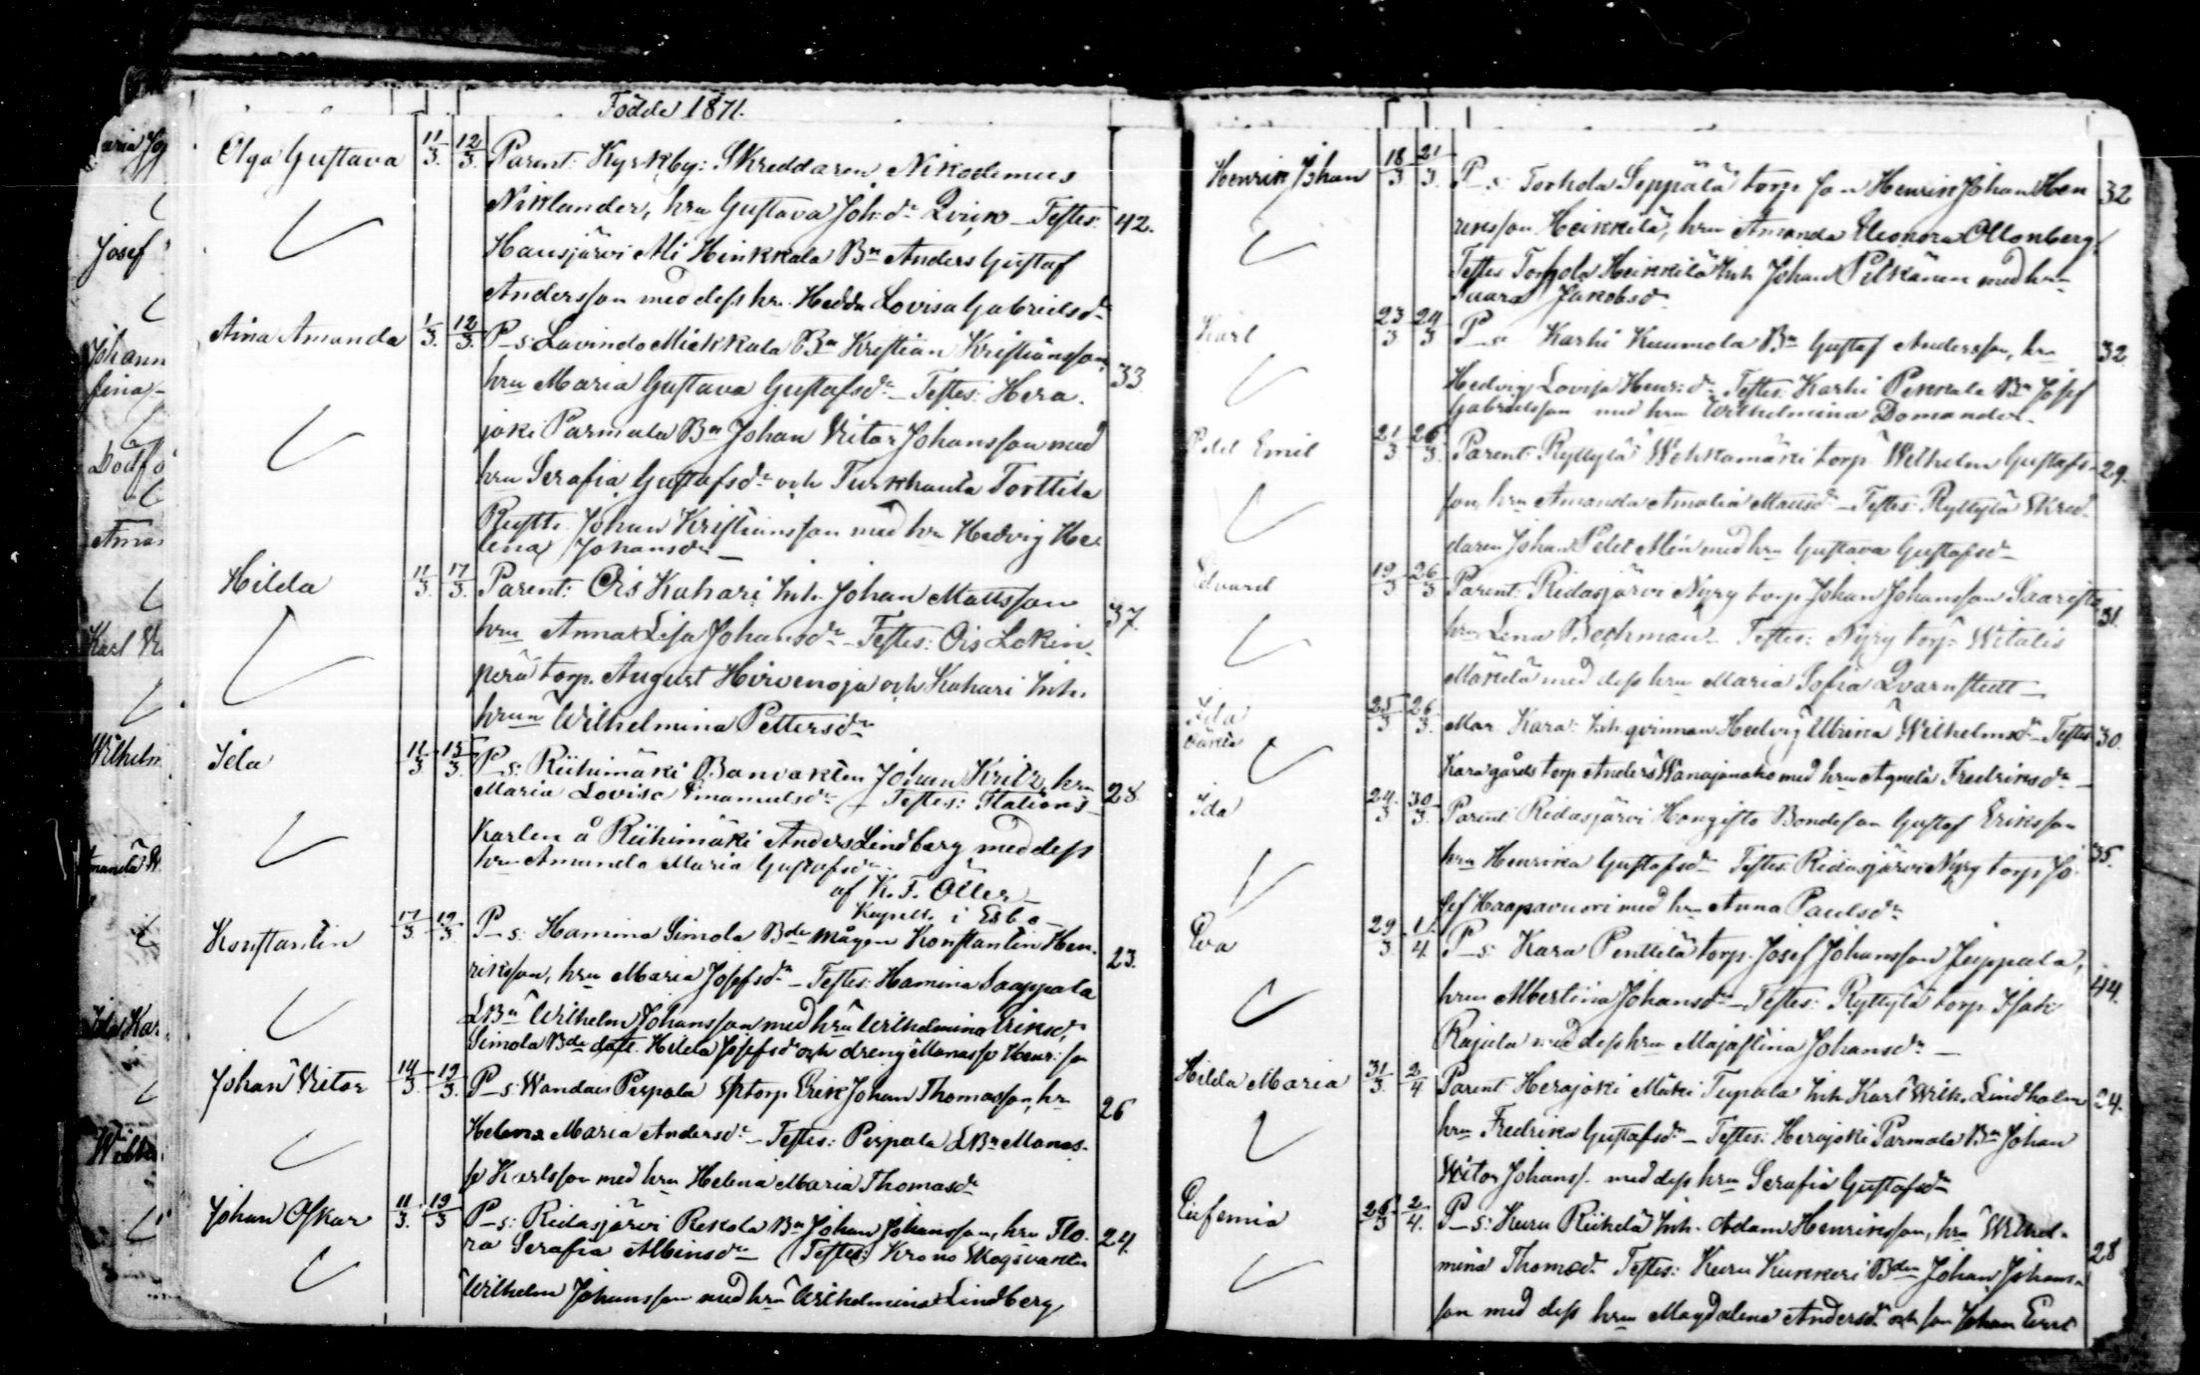 Födde 1871.
Olga Gustava 11/3. 12/3. Parent: Kyrkby: Skreddaren Nikodemus
Niklander, hru Gustava Joh:dr Qvick – Testes: 42.
Hausjärvi Ali Hinkkala Bn Anders Gustaf
Andersson med dess hru Hedda Lovisa Gabrielsdr
Aina Amanda 1/3. 12/3. P_s: Lavindo Mickkala Bn Kristian Kristiansson,
hru Maria Gustava Gustafsdr – Testes: Hera- 33
joki Parmala Bn Johan Victor Johansson med
hru Serafia Gustafsdr och Turkhauta Torttila
Rustte. Johan Kristiansson med hru Hedvig He-
lena Johansdr –
Hilda 11/3. 17/3. Parent: Ois Kahari Inh. Johan Mattsson
hru Anna Lisa Johansdr – Testes: Ois Lokin- 37.
perä torp. August Hirvenoja och Kahari Inh.
hrun Wilhelmina Pettersdr
Ida 11/3 15/3. P_s: Riihimäki Banvakten Johan Kritz, hru
Maria Lovisa Emanuelsdr – Testes: Stations 28.
Karlen å Riihimäki Anders Lindberg med dess
hru Amanda Maria Gustafsdr
af K. F. Öller –
Kapell. i Esbo –
Konstantin 17/3 19/3 P_s: Hamina Simola Bde mågen Konstantin Hen-
riksson, hru Maria Josefsdr – Testes: Hamina Saappala 23.
LBn Wilhelm Johansson med hru Wilhelmina Eriksdr,
Simola Bde datt. Hilda Josefsdr och dreng Manasse Henr: son
Johan Victor 14/3. 19/3. P_s: Wandais Pirpala Sptorp Erik Johan Thomasson, hru 26
Helena Maria Andersdr – Testes: Pirpala LBn Manas-
se Karlsson med hru Helena Maria Thomasdr
Johan Oskar 11/3. 19/3 P_s: Ridasjärvi Rekola Bn Johan Johansson, hru Flo- 24.
ra Serafia Albinsdr – Testes: Krono Skogsvakten
Wilhelm Johansson med hru Wilhelmina Lindberg
Henrik Johan 18/3 21/3. P_s: Torhola Seppälä torp. son Henrik Johan Hen 32
riksson Heikkilä, hru Amanda Eleonora Ollonberg,
Testes Torhola Heikkilä Inh. Johan Pitkänen med hru
Saara Jakobsdr
Karl 23/3 24/3 P_s Karhi Kuumola Bn Gustaf Andersson, hru 32
Hedvig Lovisa Henr:dr Testes: Karhi Penkala Bn Josef
Gabrielsson med hru Wilhelmina Domander.
Petel Emil 21/3 26/3. Parent: Ryttylä Wehkamäki torp. Wilhelm Gustafs- 29.
son, hru Amanda Amalia Mattsdr – Testes: Ryttylä Skred-
daren Johan Petel Alin med hru Gustava Gustafsdr
Edvard 19/3 26/3 Parent: Ridasjärvi Nyry torp. Johan Johansson Saaristo 31.
hru Lena Beckman – Testes: Nyry torp. Witalis
Mäkelä med dess hru Maria Sofia Qvarnstedt –
Ida 25/3 26/3. Mar. Kara: Inh. qvinnan Hedvig Ulrika Wilhelmsdr – Testes 30.
oäkta
Kara gårds torp. Anders Wanajanaho med hru Agneta Fredriksdr –
Ida 24/3 30/3. Parent Ridasjärvi Hongisto Bondeson Gustaf Eriksson
hru Henrika Gustafsdr Testes: Ridasjärvi Nyry torp. Jo- 35.
sef Haapavuori med hru Anna Paulsdr
Eva 29/3 1/4. P_s: Kara Penttilä torp. Josef Johansson Jeippala,
hru Albertina Johansdr – Testes: Ryttylä torp. Isak 44.
Rajala med dess hru Majastina Johansdr –
Hilda Maria 31/3. 2/4 Parent Herajoki Mäki Teipala Inh. Karl Wilh. Lindholm 24.
hru Fredrika Gustafsdr – Testes: Herajoki Parmala Bn Johan
Victor Johanss. med dess hru Serafia Gustafsdr
Eufemia 26/3 2/4. P_s: Kuru Rükelä Inh. Adam Henriksson, hru Wilhel-
mina Thomasdr Testes: Kuru Kukkeri Bden Johan Johans- 28
son med dess hru Magdalena Andersdr och son Johan Evert
Josef
Johann
Amanda W.
Karl Vi
Wilhelm
Ida Kar